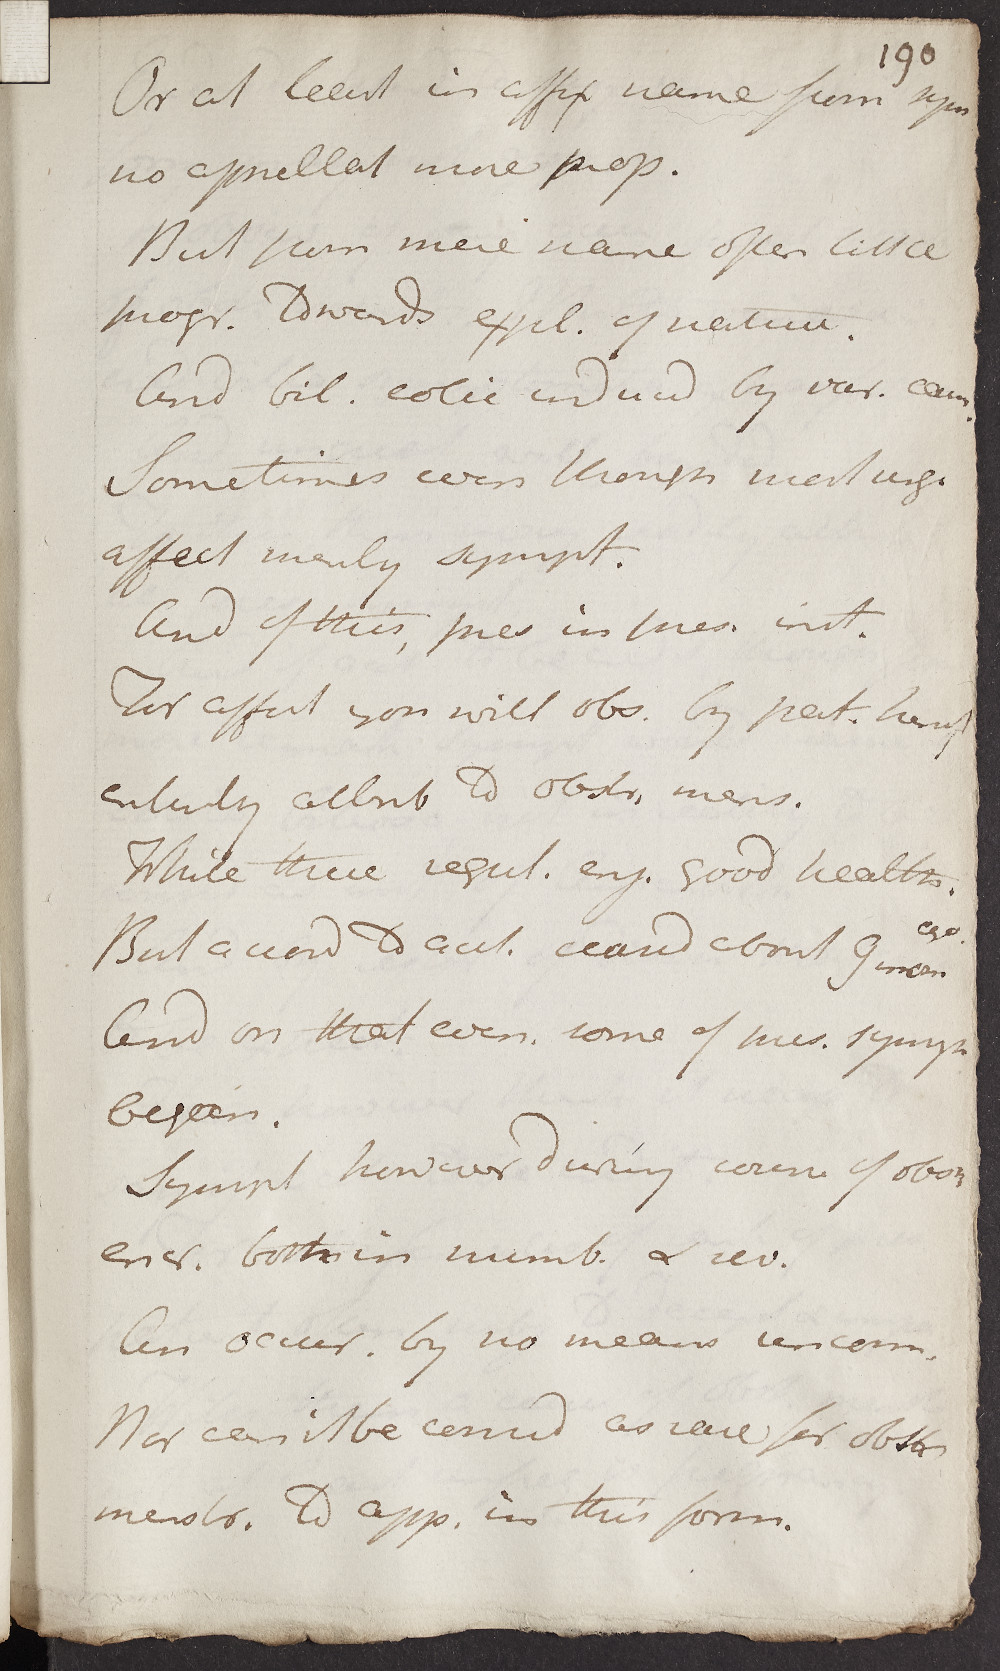 190
Or at least in affix name from sym
no appellat more prop.
But from mere name often little
progr. Towards expl. of nature.
And bil. colic induced by var. caus.
Sometimes even though most urg.
affect merely sympt.
And of this, pres in pres. inst.
For affect you will obs. by pat. herself
entirely attrib to obstr. mens.
While these regul. enj. good health.
But accord to acct. ceased about 9 mon ago.
And on that even. some of pres. symp
began.
Sympt however during course of obstr
encr. both in numb. & sev.
An occur. by no means uncom.
Nor can it be consid as rare for obstr
menstr. To app. in this form.